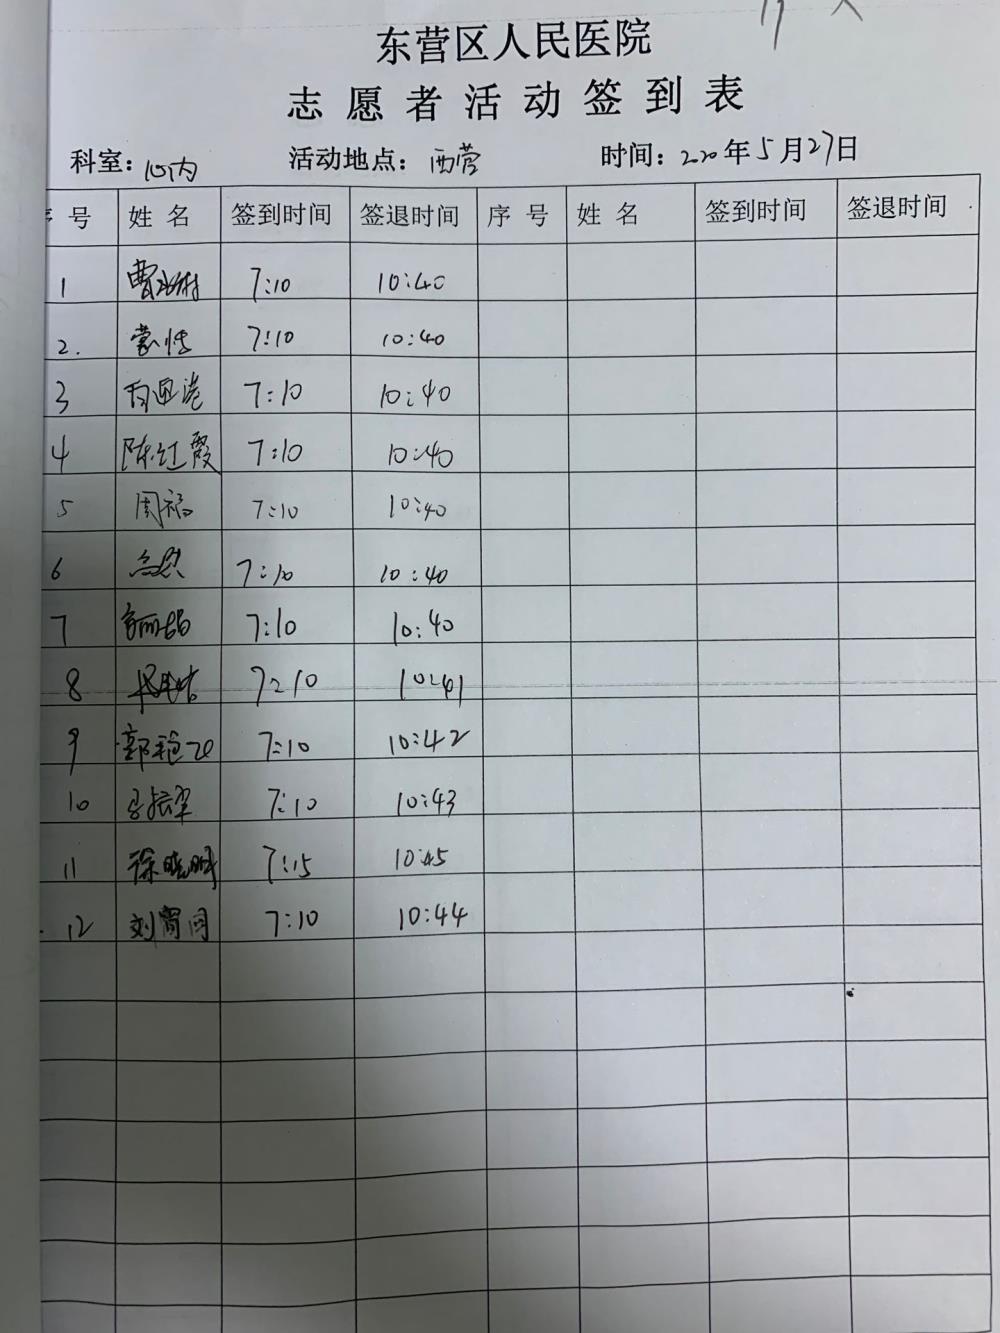 东营区人民医院
志愿者活动签到表
科室：心内 活动地点：西营 时间：2020年5月27日
序号 姓名 签到时间 签退时间 序号 姓名 签到时间 签退时间
1 7:10 10:40
2. 7:10 10:40
3 7:10 10:40
4 陈红霞 7:10 10:40
5 周福 7:10 10:40
6 7:10 10:40
7 7:10 10:40
8 7:10 10:41
9 7:10 10:42
10 7:10 10:43
11 徐晓明 7:15 10:45
12 7:10 10:44